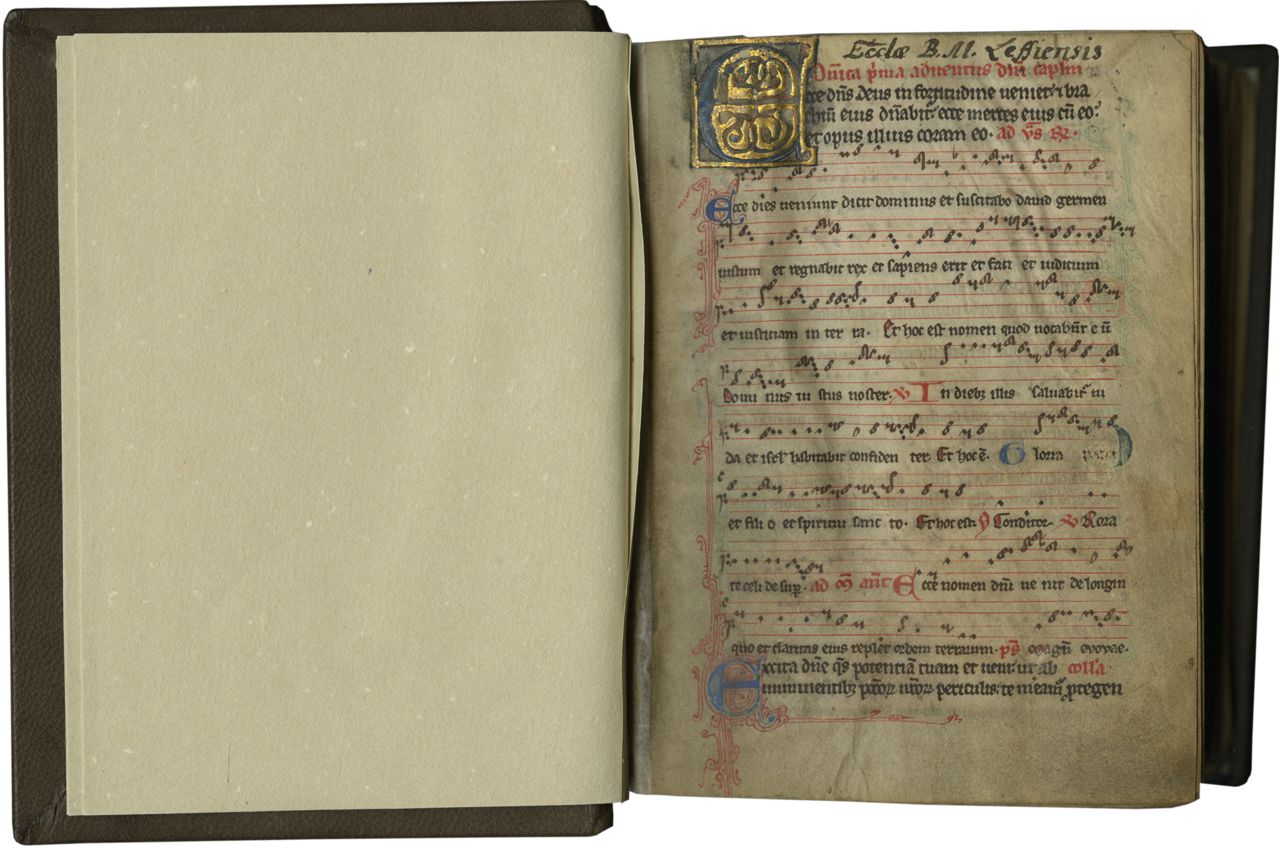 Eccłæ B. M. Leffiensis
Dn̄ica p̄ma aduentus dn̄i capl̄m
Ecce dn̄s deus in fortitudine ueniet⁊ bra
chiū eius dn̄abit᷑ ecce merces eius cū eo⁊
et opus illius coram eo. ad v̄s R̄.
Ecce dies ueniunt dicit dominus et suscitabo dauid germen
iustum et regnabit rex et sapiens erit et faci et iudicium
et iusticiam in ter ra. Et hoc est nomen quod uocabūt e ū
Domi nus iu stus noster. ℣ In dieb; illis saluabit᷑ iu
da et isrl̄ habitabit confiden ter. Et hoc ē. Gloria patri
et fili o et spiritui sanc to. Et hoc est. Conditor. ℣ Rora
te celi de sup̄. ad m̄ ant̄ Ecce nomen dn̄i ue nit de longin
quo et claritas eius replet orbem terrarum. p̄s magn̄ evovae.
Excita dn̄e q̄s potenciā tuam et ueni⁊ ut ab coll̄a
imminentib; pccōꝝ nr̄oꝝ periculis⁊ te mream᷑ ꝓtegen